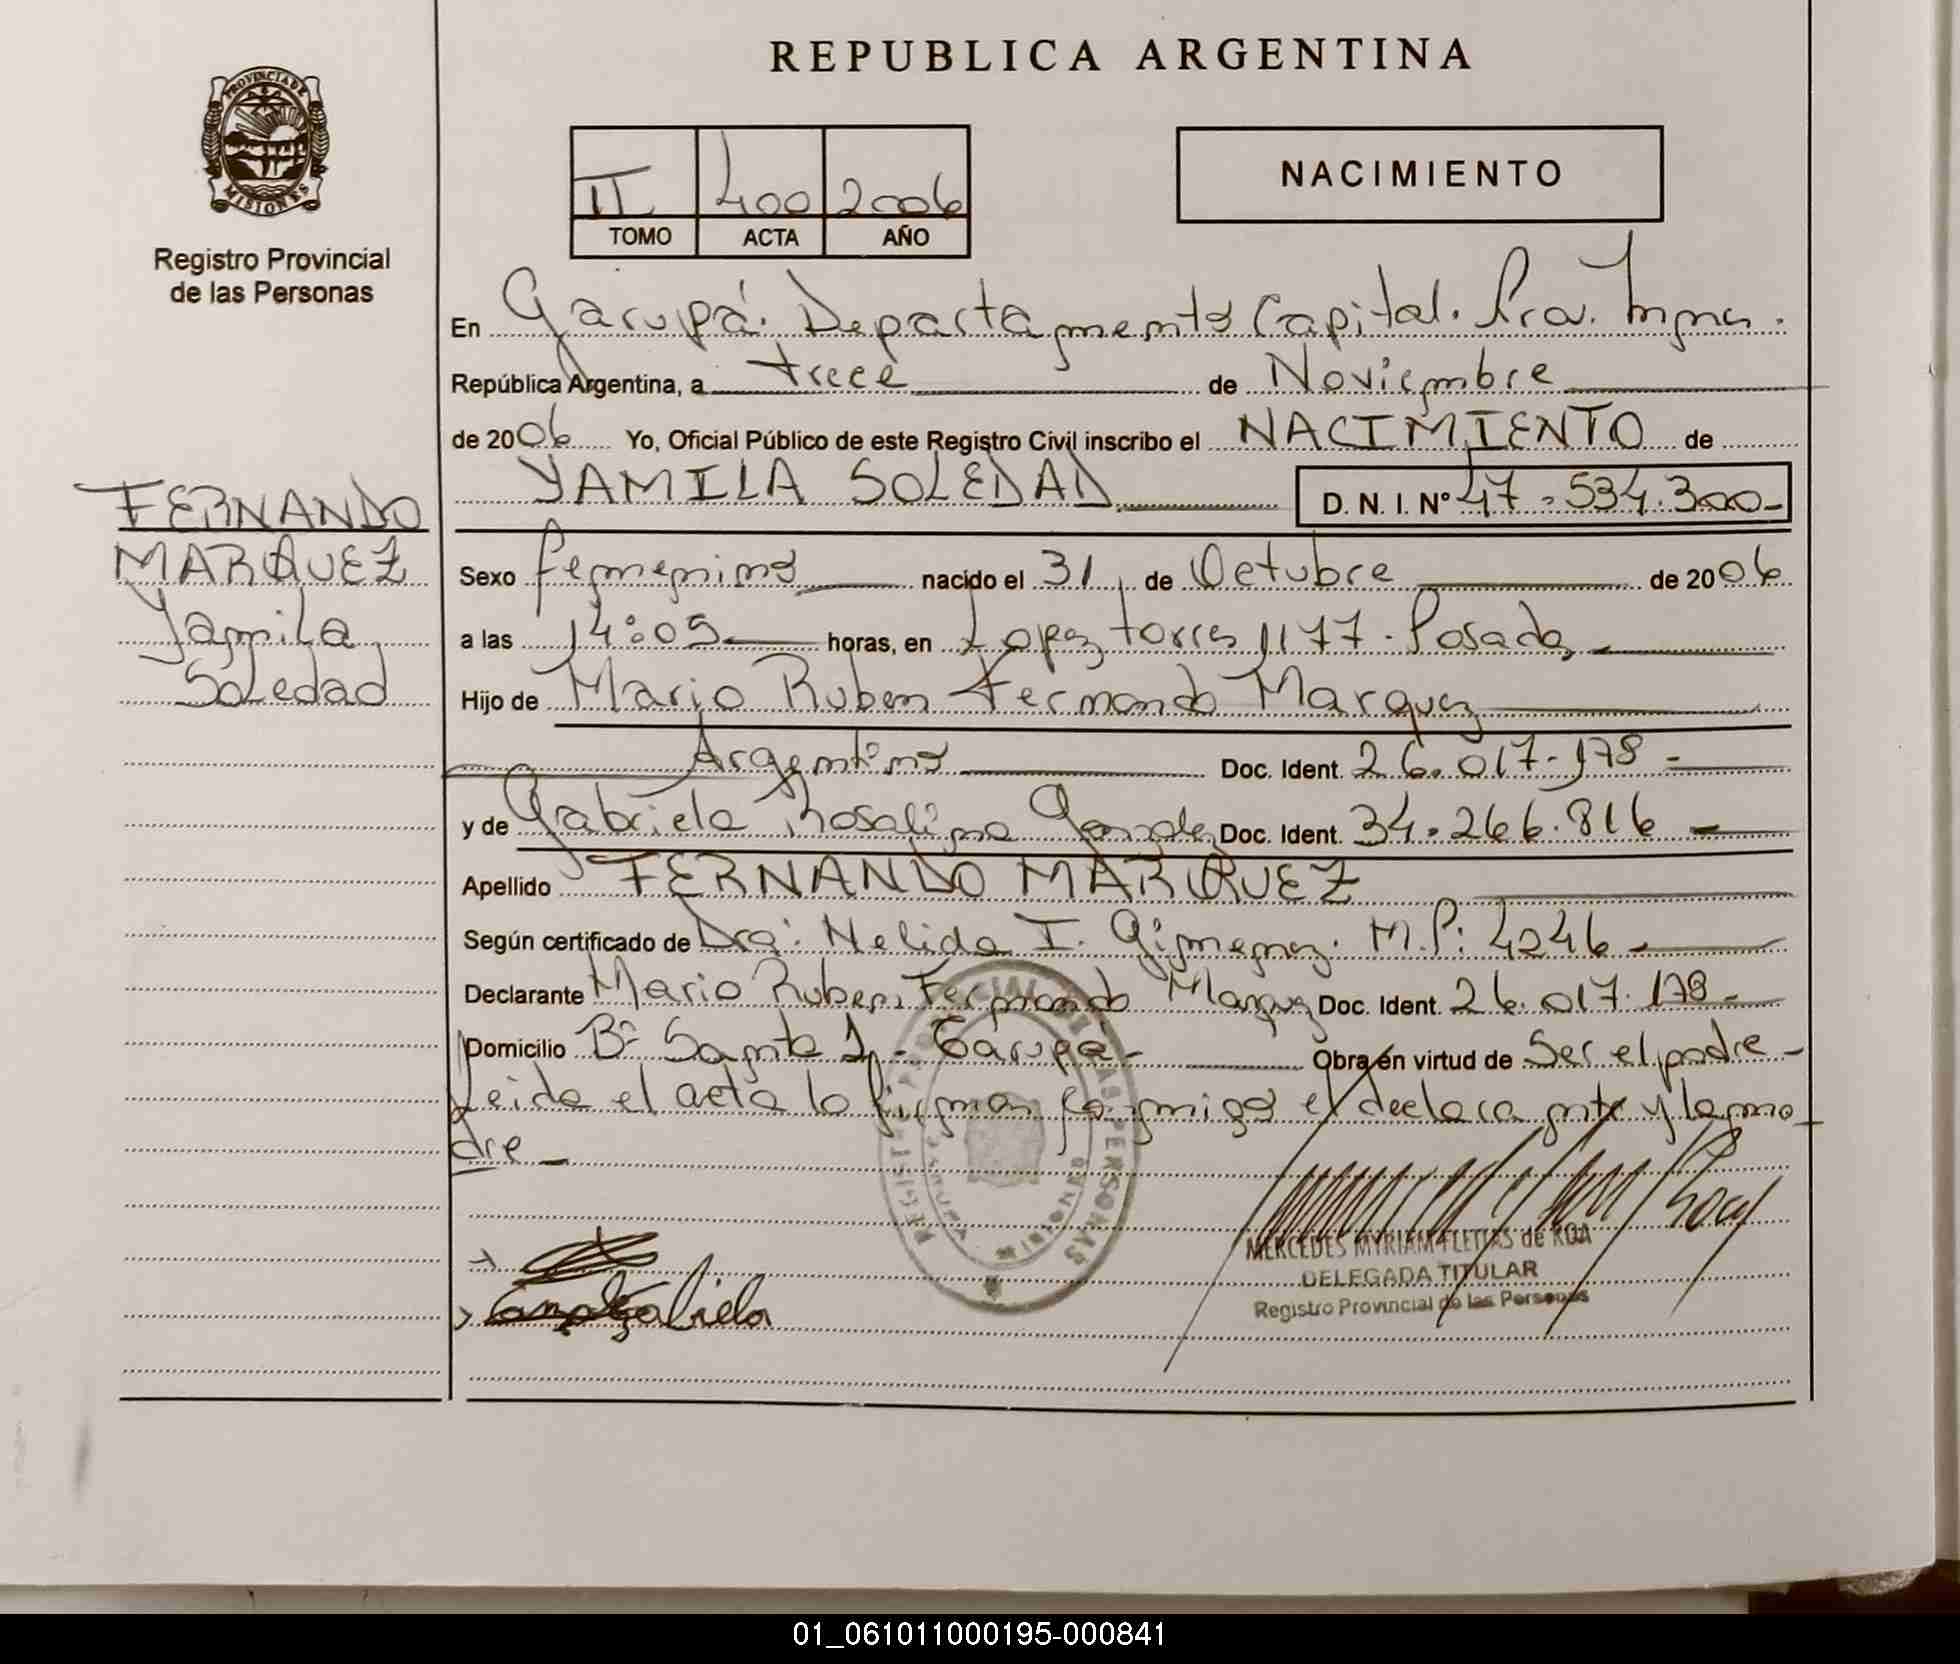 REPUBLICA ARGENTINA
PROVINCIA DE MISIONES
Registro Provincial
de las Personas
NACIMIENTO
II 400 2006
TOMO ACTA AÑO
En Garupá. Departamento Capital. Prov. Mnes.
República Argentina, a trece de Noviembre
de 2006 Yo, Oficial Público de este Registro Civil inscribo el NACIMIENTO de
YAMILA SOLEDAD D. N. I. Nº 47.534.300-
FERNANDO
MARQUEZ
Yamila
Soledad
Sexo femenino nacido el 31 de Octubre de 2006
a las 14:05 horas, en Lopez torres 1177. Posadas
Hijo de Mario Ruben Fernando Marquez
Argentino Doc. Ident. 26.017.178-
y de Gabriela Rosalina Gonzalez Doc. Ident. 34.266.816
Apellido FERNANDO MARQUEZ
Según certificado de Dra: Nelida I. Gimenez. M.P: 4246
Declarante Mario Ruben Fernando Marquez Doc. Ident. 26.017.178-
Domicilio Bº Santa - Garupá- Obra en virtud de Ser el padre-
Leida el acta la firman conmigo el declarante y la ma-
dre-
REGISTRO PROVINCIAL DE LAS PERSONAS
MISIONES
Gabriela
MERCEDES MYRIAM FLEITAS de ROA
DELEGADA TITULAR
Registro Provincial de las Personas
01_061011000195-000841